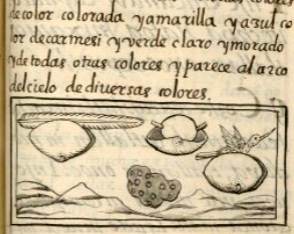 de color colorada y amarilla y asul co
lor de carmesi y verde claro y morado
y de todas otras colores y parece al arco
del cielo de diuersas colores.